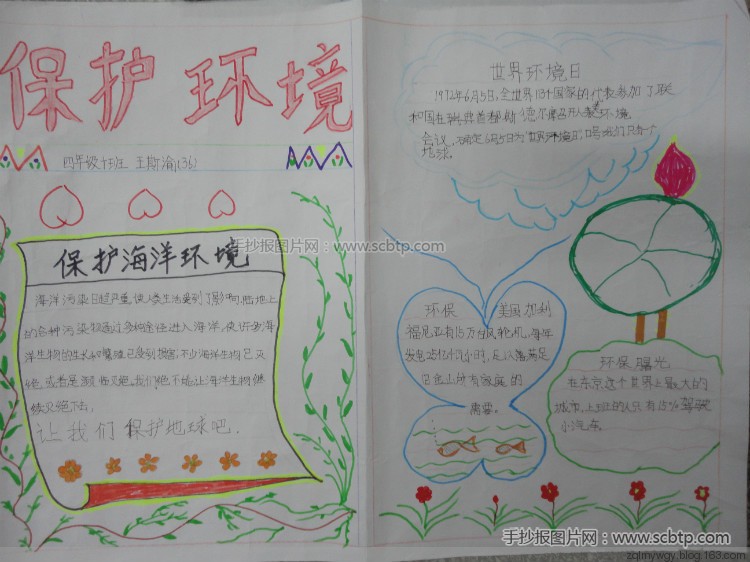 保护环境
四年级十班 王斯渝(36)
保护海洋环境
海洋污染日趋严重,使人类生活受到了影响,陆地上
的各种污染物通过多种途径进入海洋,使许多海
洋生物的生长和繁殖已受到损害,不少海洋生物已灭
绝,或者是濒临灭绝。我们绝不能让海洋生物继
续灭绝下去。
让我们保护地球吧.
世界环境日
1972年6月5日,全世界113个国家的代表参加了联
和国在瑞典首都斯德尔摩召开人类环境
会议,确定6月5日为"世界环境日",口号:我们只有一个
地球。
环保 美国加利
福尼亚有1.5万台风轮机,每年
发电
旧金山所有家庭的
需要。
环保曙光
在东京这个世界上最大的
城市,上班的人只有15%驾驶
小汽车。
手抄报图片网:www.scbtp.com
手抄报图片网:www.scbtp.com
zqlmywgy.blog.163.com